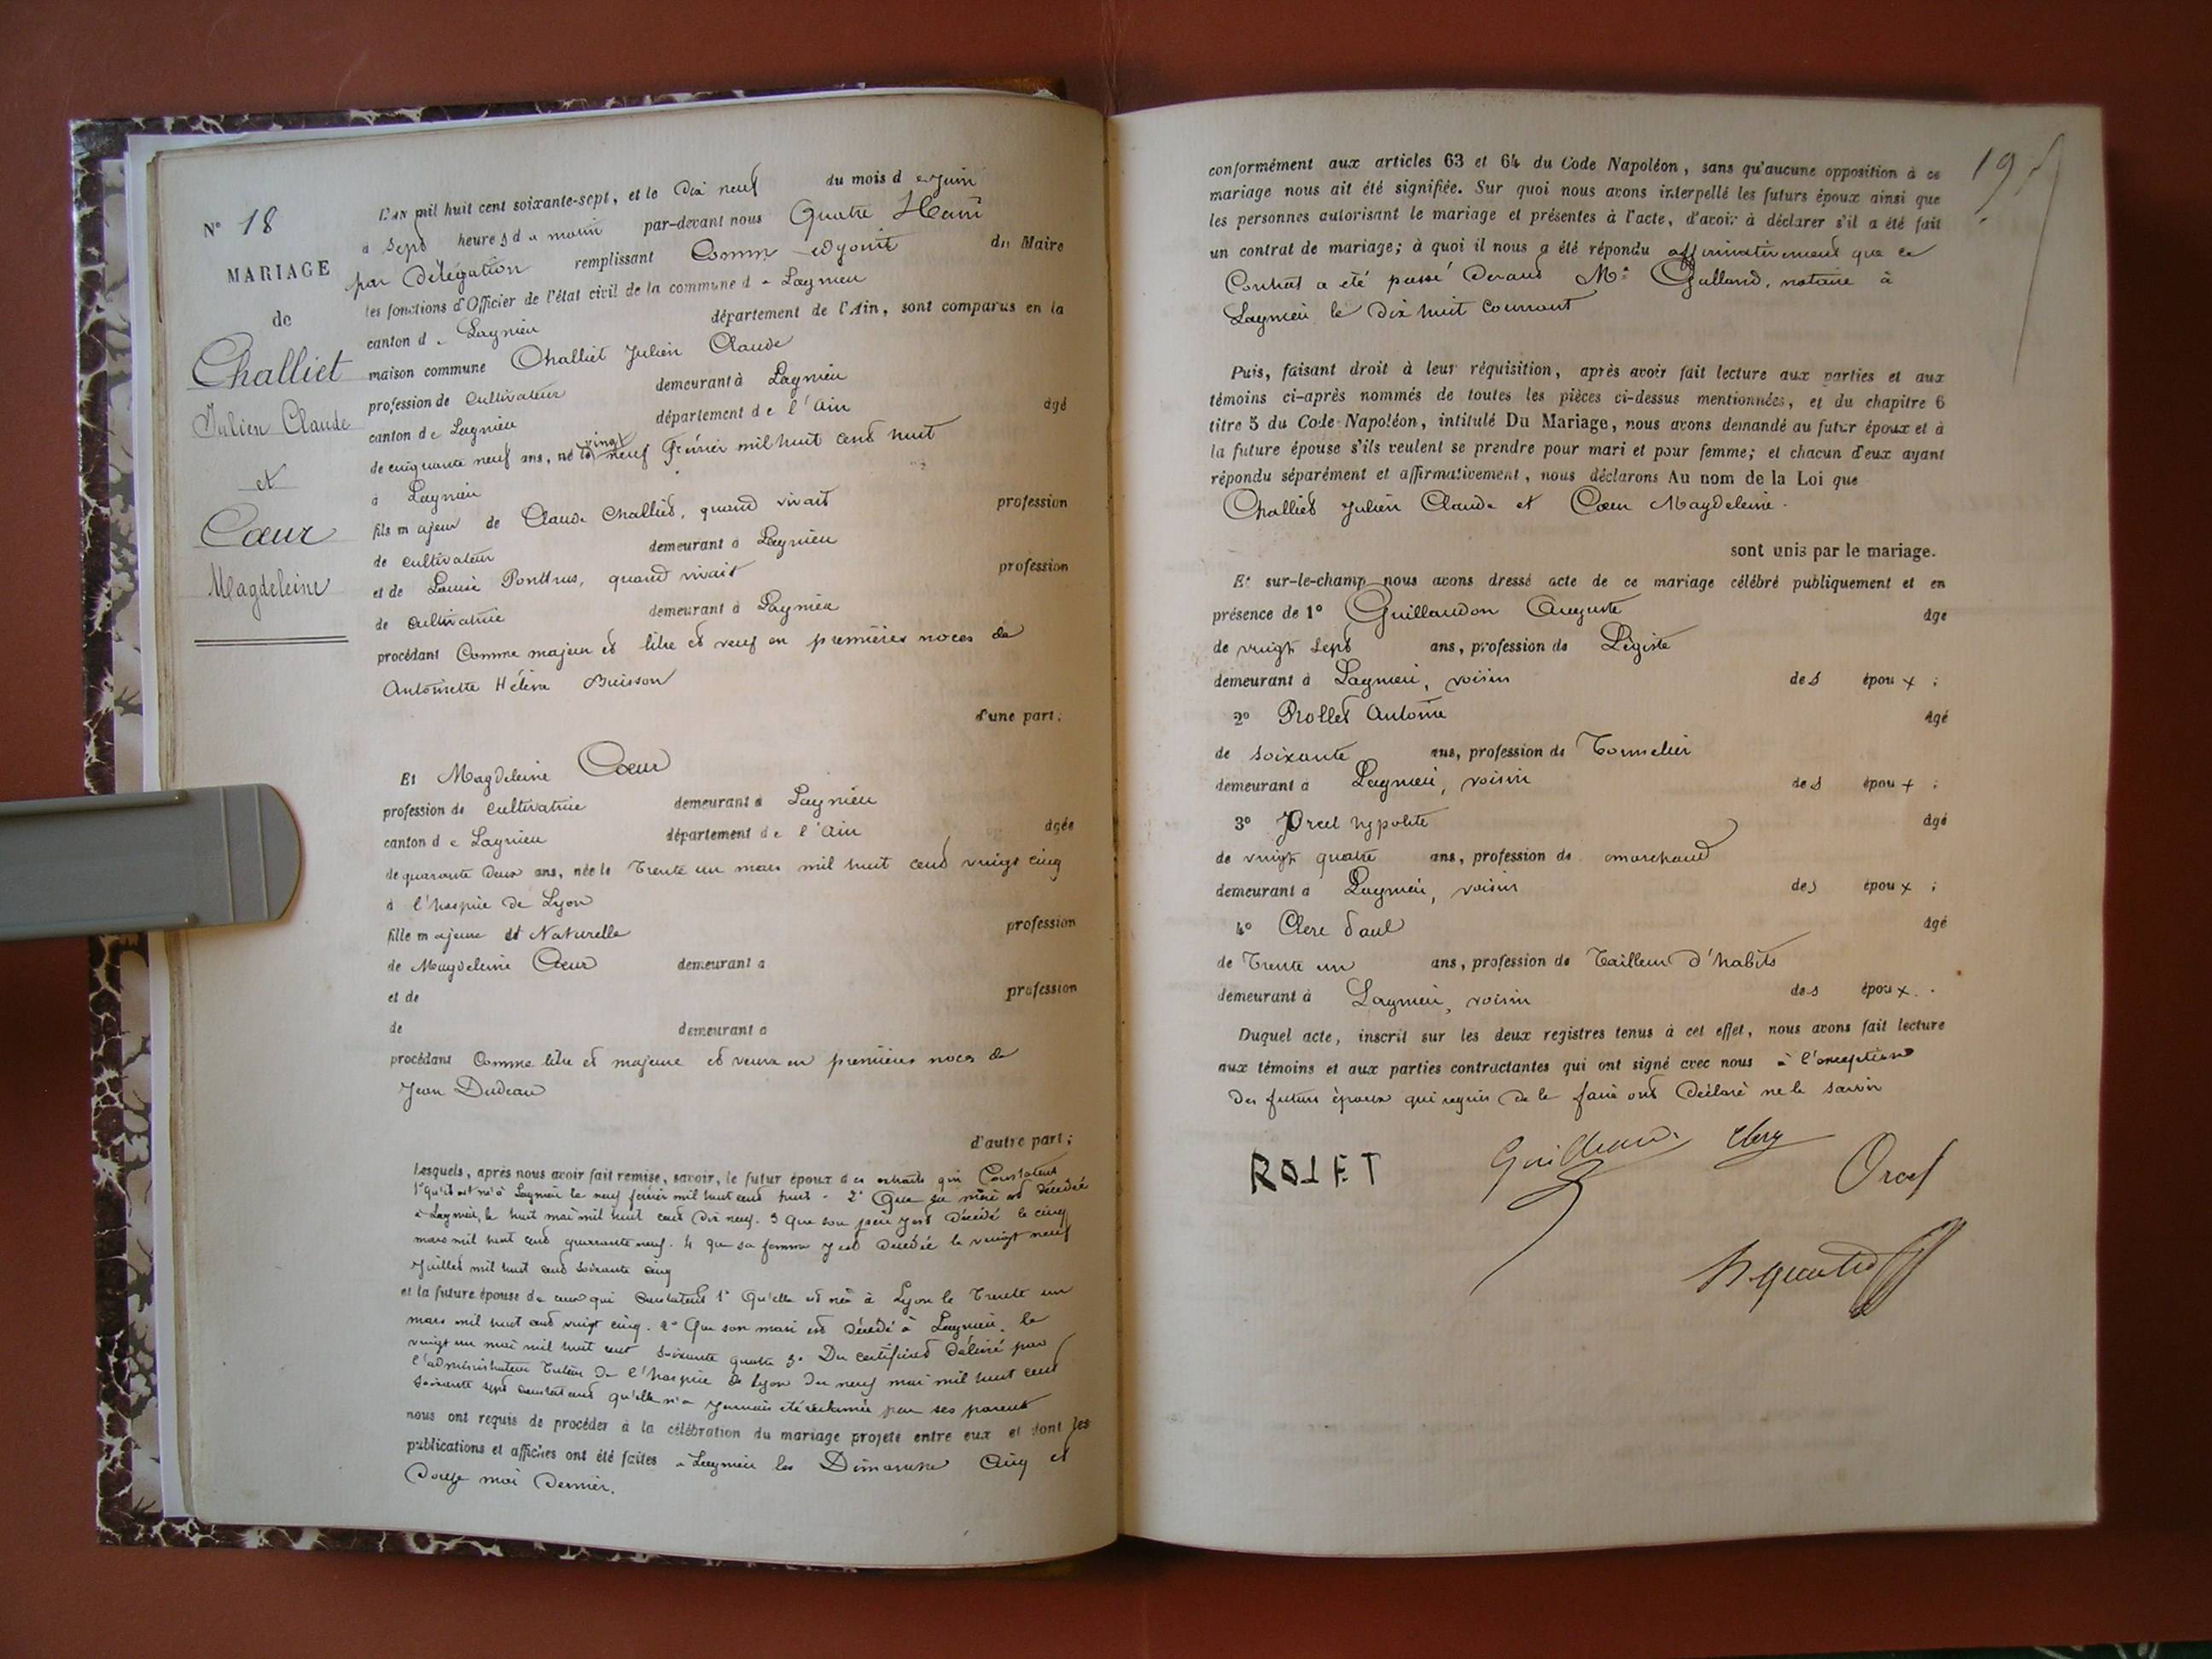 N° 18
MARIAGE
de
Challiet
Julien Claude
et
Cœur
Magdeleine
L'AN mil huit cent soixante-sept, et le Dix neuf du mois de Juin
à Sept heures du matin par-devant nous Quatre Henri
par Délégation remplissant Comme adjoint du Maire
les fonctions d'Officier de l'état civil de la commune de Lagnieu
canton de Lagnieu département de l'Ain, sont comparus en la
maison commune Challiet Julien Claude
profession de Cultivateur demeurant à Lagnieu
canton de Lagnieu département de l'Ain âgé
de cinquante neuf ans, né le vingt neuf Février mil huit cent huit
à Lagnieu
fils majeur de Claude Challiet, quand vivait profession
de cultivateur demeurant à Lagnieu
et de Louise Ponthus, quand vivait profession
de cultivatrice demeurant à Lagnieu
procédant Comme majeur et libre et veuf en premières noces de
Antoinette Hélène Buisson
d'une part;
Et Magdeleine Cœur
profession de cultivatrice demeurant à Lagnieu
canton de Lagnieu département de l'Ain âgée
de quarante deux ans, née le Trente un mars mil huit cent vingt cinq
à l'hospice de Lyon
fille majeure et Naturelle profession
de Magdeleine Cœur demeurant à
et de profession
de demeurant à
procédant Comme libre et majeure et veuve en premières noces de
Jean Dudeau
d'autre part;
Lesquels, après nous avoir fait remise, savoir, le futur époux des extraits qui Constatent
1° qu'il est né à Lagnieu le neuf février mil huit cent huit - 2° Que sa mère est décédée
à Lagnieu, le huit mai mil huit cent Dix neuf. 3 Que son père y est décédé le cinq
mars mil huit cent quarante neuf. 4 que sa femme y est décédée le vingt neuf
Juillet mil huit cent soixante cinq
et la future épouse de ceux qui constatent 1° Qu'elle est née à Lyon le Trente un
mars mil huit cent vingt cinq. 2° Que son mari est décédé à Lagnieu, le
vingt un mai mil huit cent soixante quatre 3° Du certificat délivré par
l'administrateur Tuteur de l'hospice de Lyon du neuf mai mil huit cent
soixante sept constatant qu'elle n'a jamais été réclamée par ses parents
nous ont requis de procéder à la célébration du mariage projeté entre eux et dont les
publications et affiches ont été faites à Lagnieu les Dimanches Cinq et
Douze mai Dernier.
197
conformément aux articles 63 et 64 du Code Napoléon, sans qu'aucune opposition à ce
mariage nous ait été signifiée. Sur quoi nous avons interpellé les futurs époux ainsi que
les personnes autorisant le mariage et présentes à l'acte, d'avoir à déclarer s'il a été fait
un contrat de mariage; à quoi il nous a été répondu affirmativement que ce
Contrat a été passé Devant M° Gulland, notaire à
Lagnieu le Dix huit Courrant
Puis, faisant droit à leur réquisition, après avoir fait lecture aux parties et aux
témoins ci-après nommés de toutes les pièces ci-dessus mentionnées, et du chapitre 6
titre 5 du Code Napoléon, intitulé Du Mariage, nous avons demandé au futur époux et à
la future épouse s'ils veulent se prendre pour mari et pour femme; et chacun d'eux ayant
répondu séparément et affirmativement, nous déclarons Au nom de la Loi que
Challiet Julien Claude et Cœur Magdeleine.
sont unis par le mariage.
Et sur-le-champ nous avons dressé acte de ce mariage célébré publiquement et en
présence de 1° Guillaudon Auguste âgé
de vingt Sept ans, profession de Légiste
demeurant à Lagnieu, voisin des époux;
2° Rollet Antoine âgé
de soixante ans, profession de Tonnelier
demeurant à Lagnieu, voisin des époux;
3° Orcel hypolite âgé
de vingt quatre ans, profession de marchand
demeurant à Lagnieu, voisin des époux;
4° Clerc Paul âgé
de Trente un ans, profession de Tailleur d'habits
demeurant à Lagnieu, voisin des époux.
Duquel acte, inscrit sur les deux registres tenus à cet effet, nous avons fait lecture
aux témoins et aux parties contractantes qui ont signé avec nous à l'exception
Des futurs époux qui requis de le faire ont Déclaré ne le savoir
ROLET
Clerc
Orcel